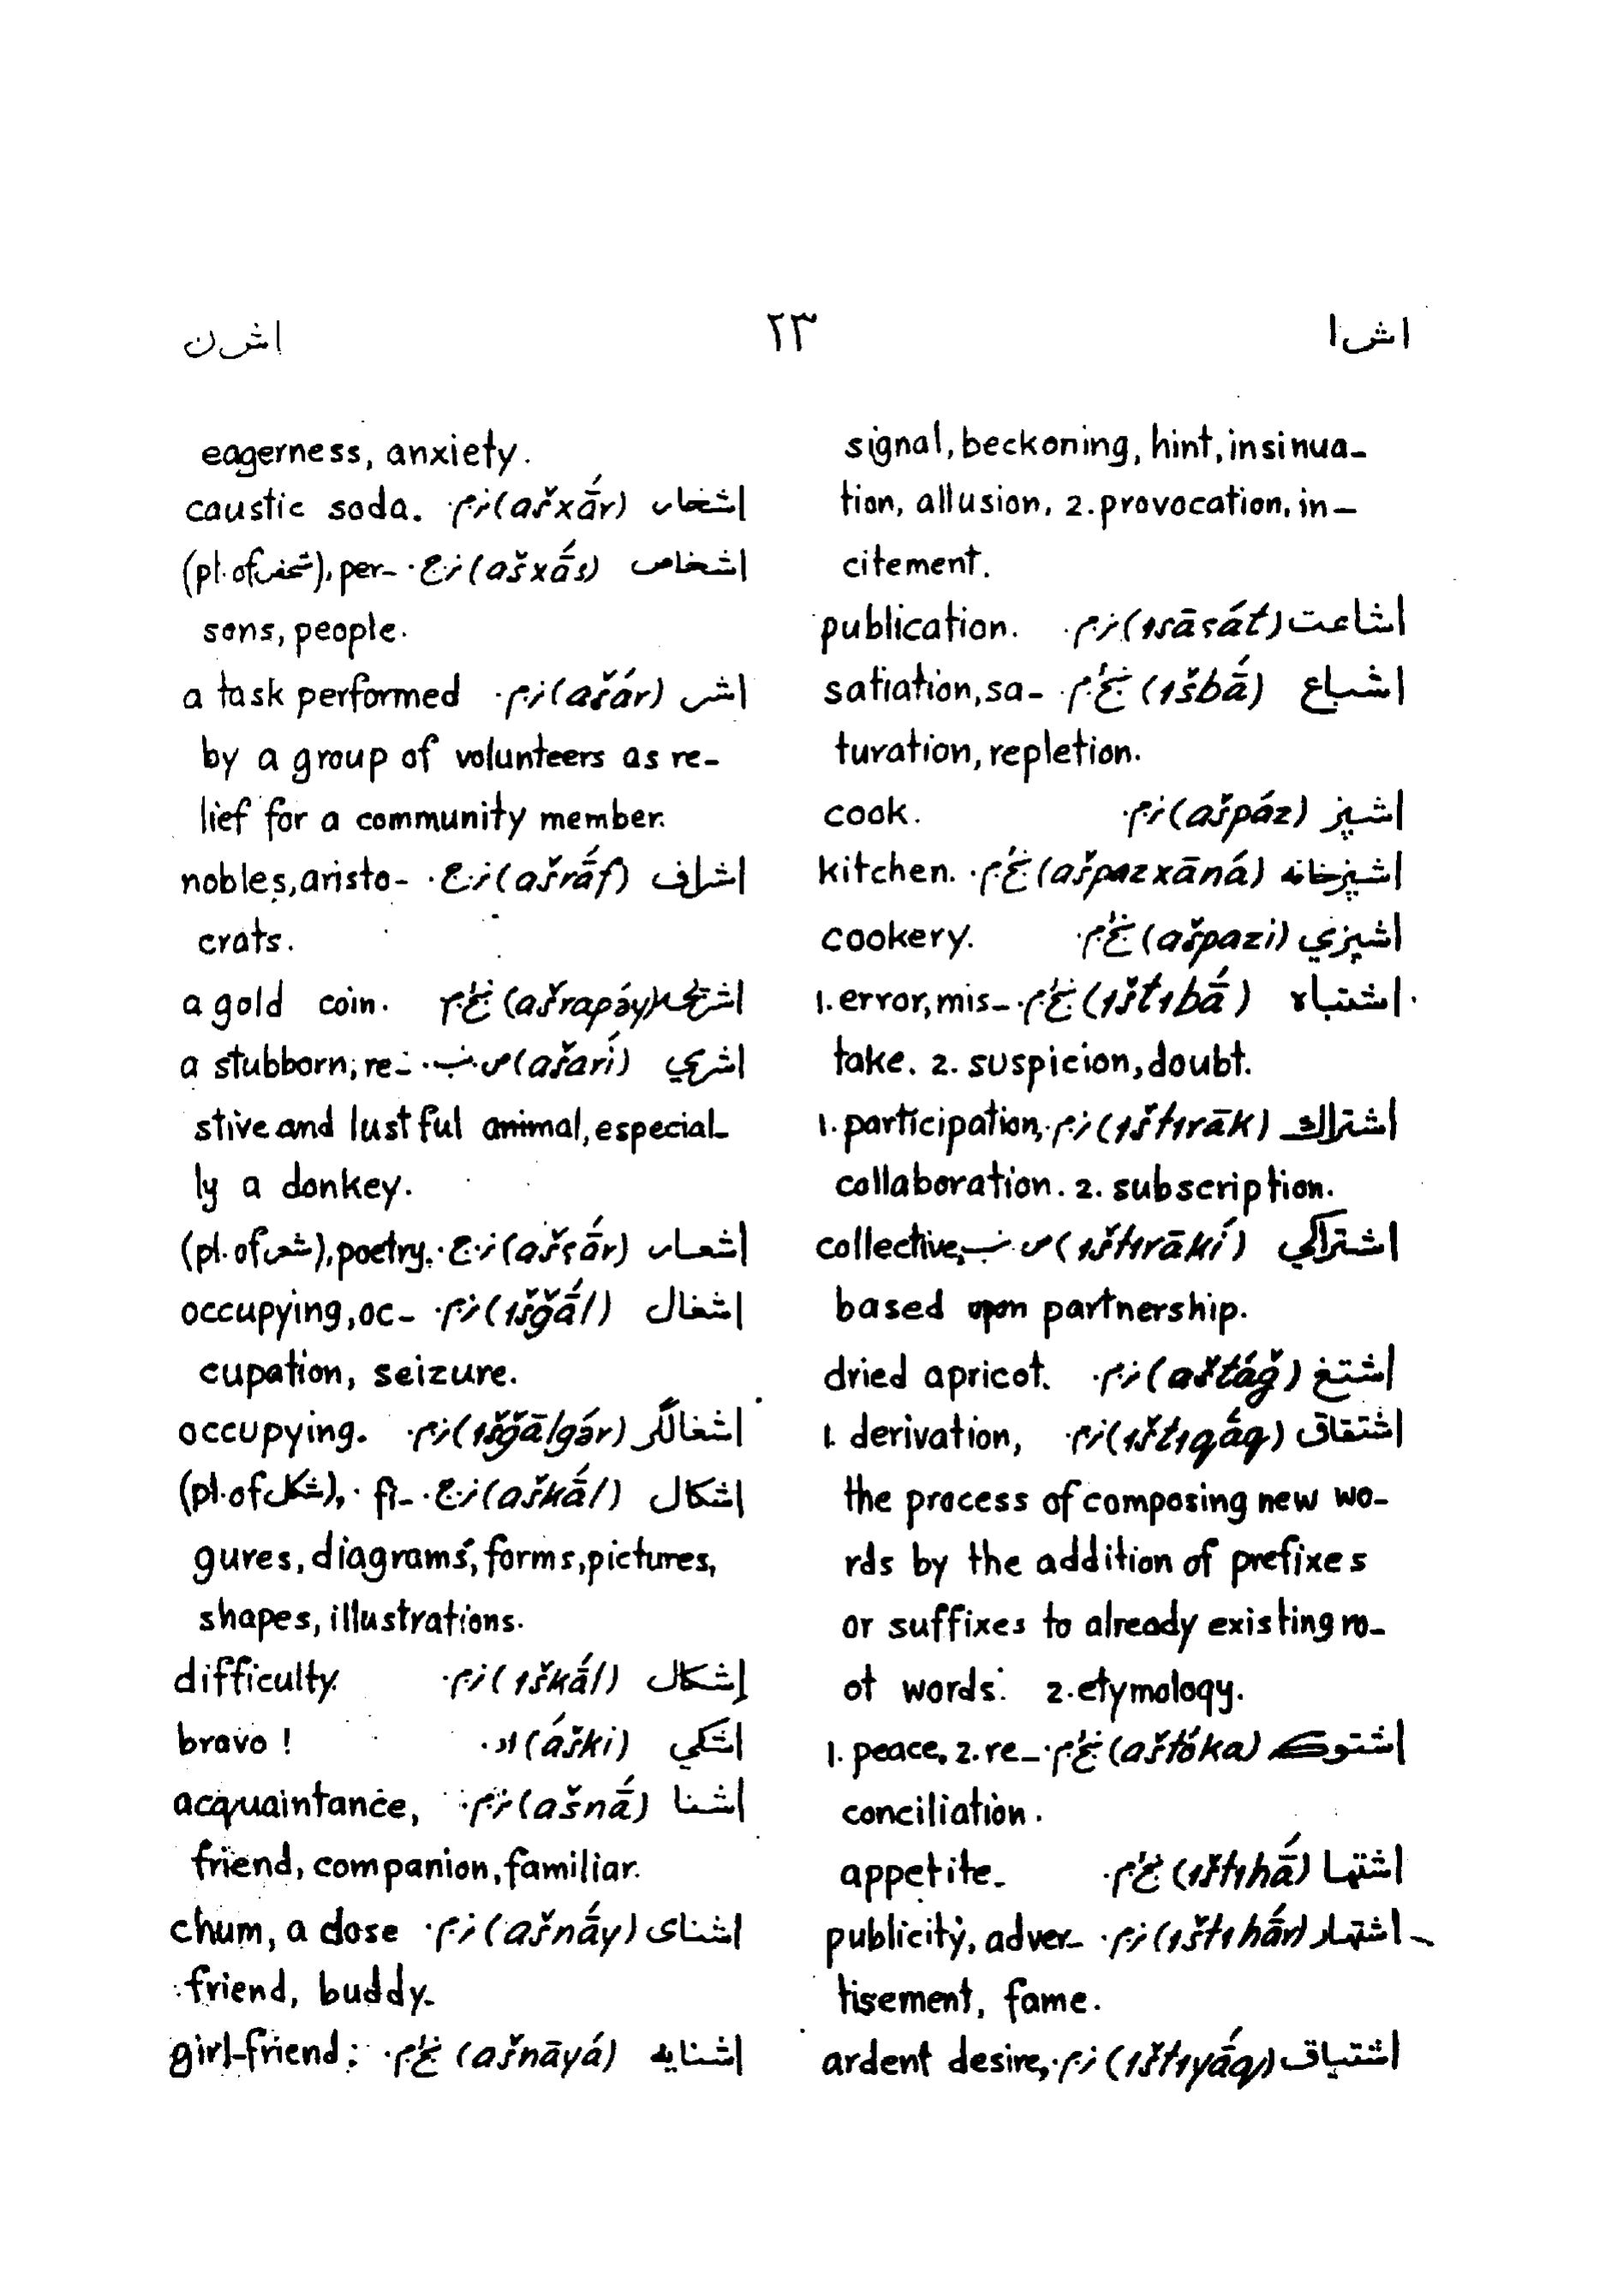 اشا ٢٣ اشن
signal, beckoning, hint, insinua-
tion, allusion, 2. provocation, in-
citement.
اشاعت (ısāɂát) نر م. publication.
اشباع (ıšbā́) غ م. satiation, sa-
turation, repletion.
اشپز (ašpáz) نر م. cook.
اشپزخانه (ašpazxāná) غ م. kitchen.
اشپزي (ašpazi) غ م. cookery.
اشتباه (ıštıbā́) غ م. 1. error, mis-
take. 2. suspicion, doubt.
اشتراك (ıštırāk) نر م. 1. participation,
collaboration. 2. subscription.
اشتراكي (ıštırākí) ص نب. collective,
based upon partnership.
اشتغ (aštáğ) نر م. dried apricot.
اشتقاق (ıštıqā́q) نر م. 1. derivation,
the process of composing new wo-
rds by the addition of prefixes
or suffixes to already existing ro-
ot words. 2. etymology.
اشتوكه (aštóka) غ م. 1. peace, 2. re-
conciliation.
اشتها (ıštıhā́) غ م. appetite.
اشتهار (ıštıhā́r) نر م. publicity, adver-
tisement, fame.
اشتياق (ıštıyā́q) نر م. ardent desire,
eagerness, anxiety.
اشخار (ašxā́r) نر م. caustic soda.
اشخاص (ašxā́s) نر ج. (pl. of شخص), per-
sons, people.
اشر (ašár) نر م. a task performed
by a group of volunteers as re-
lief for a community member.
اشراف (ašrā́f) نر ج. nobles, aristo-
crats.
(ašrapə́y) غ م a gold coin.
اشري (ašarí) ص نب. a stubborn, re-
stive and lustful animal, especial-
ly a donkey.
اشعار (ašɂā́r) نر ج. (pl. of شعر), poetry.
اشغال (ıšğā́l) نر م. occupying, oc-
cupation, seizure.
اشغالګر (ıšğālgár) نر م. occupying.
اشكال (aškā́l) نر ج. (pl. of شكل), fi-
gures, diagrams, forms, pictures,
shapes, illustrations.
إشكال (ıškā́l) نر م. difficulty.
اشكي (áški) اد. bravo!
اشنا (ašnā́) نر م. acquaintance,
friend, companion, familiar.
اشناى (ašnā́y) نر م. chum, a close
friend, buddy.
اشنايه (ašnāyá) غ م. girl-friend;